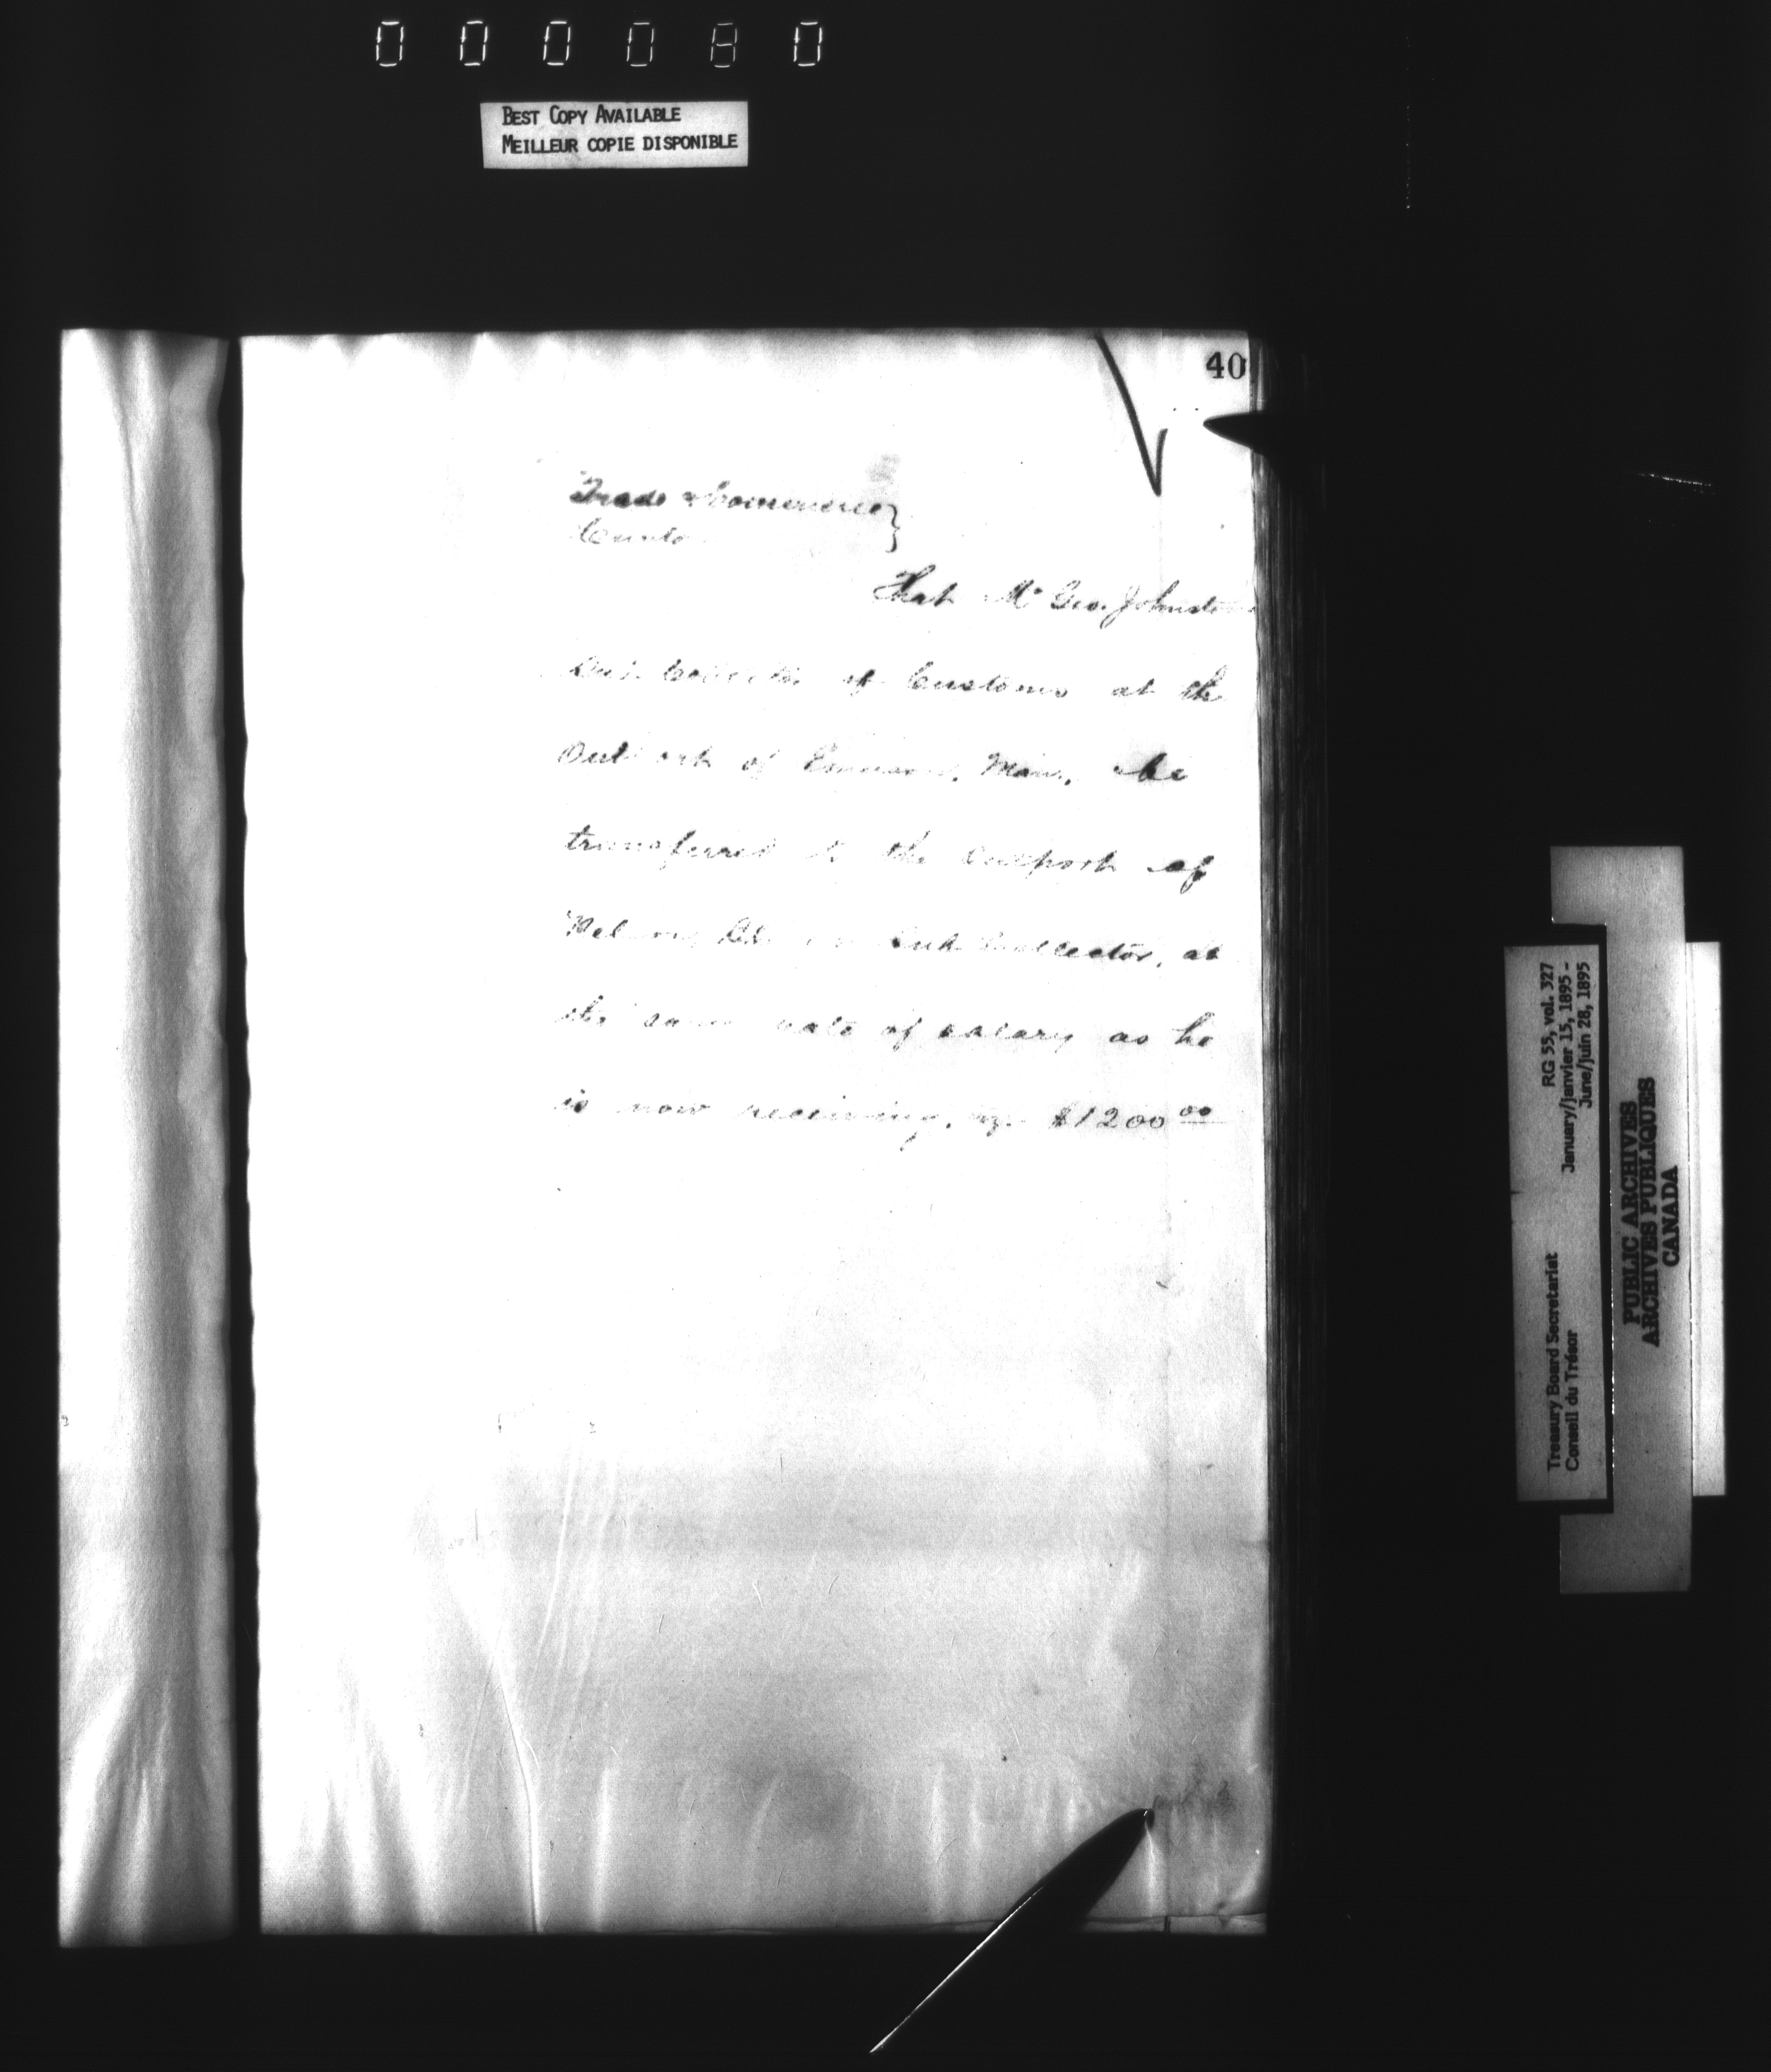 000080
BEST COPY AVAILABLE
MEILLEUR COPIE DISPONIBLE
40
Trade & Commerce
Customs
That Mr Geo. Johnstone
Sub Collector of Customs at the
Outport of Emerson, Man., be
transferred to the Outport of
Nelson, as Sub Collector, at
the same rate of salary as he
is now receiving, viz. $1200 00
RG 55, vol. 327
January/janvier 15, 1895 -
June/juin 28, 1895
Treasury Board Secretariat
Conseil du Trésor
PUBLIC ARCHIVES
ARCHIVES PUBLIQUES
CANADA